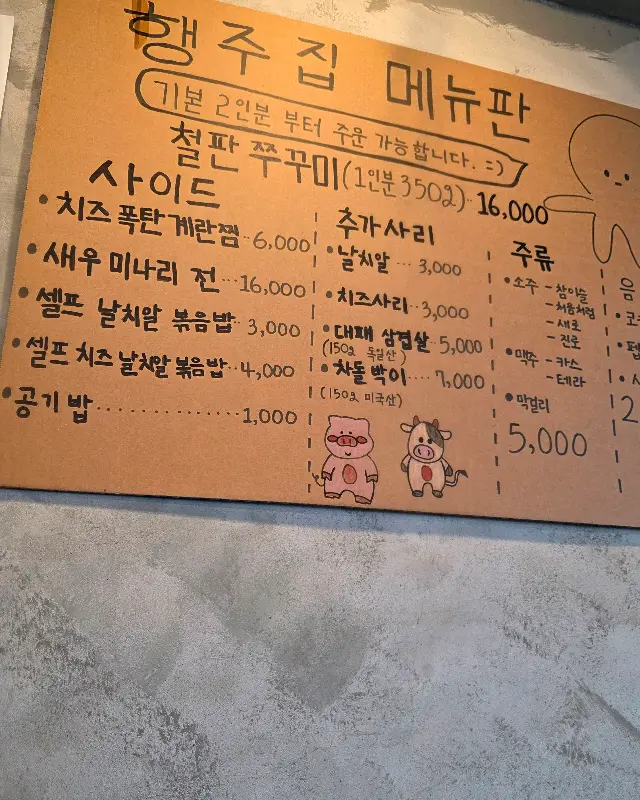 행주집 메뉴판
기본 2인분 부터 주문 가능합니다. =)
철판 쭈꾸미(1인분 350g)..16,000
사이드
• 치즈 폭탄 계란찜..6,000
• 새우 미나리 전...16,000
• 셀프 날치알 볶음밥..3,000
• 셀프 치즈 날치알 볶음밥..4,000
• 공기밥..............1,000
추가사리
• 날치알 ... 3,000
• 치즈사리..3,000
• 대패 삼겹살 5,000
(150g 독일산)
• 차돌박이.... 7,000
(150g 미국산)
주류
• 소주 - 참이슬
- 처음처럼
- 새로
- 진로
• 맥주 - 카스
- 테라
• 막걸리
5,000
음
• 코
• 펩
2